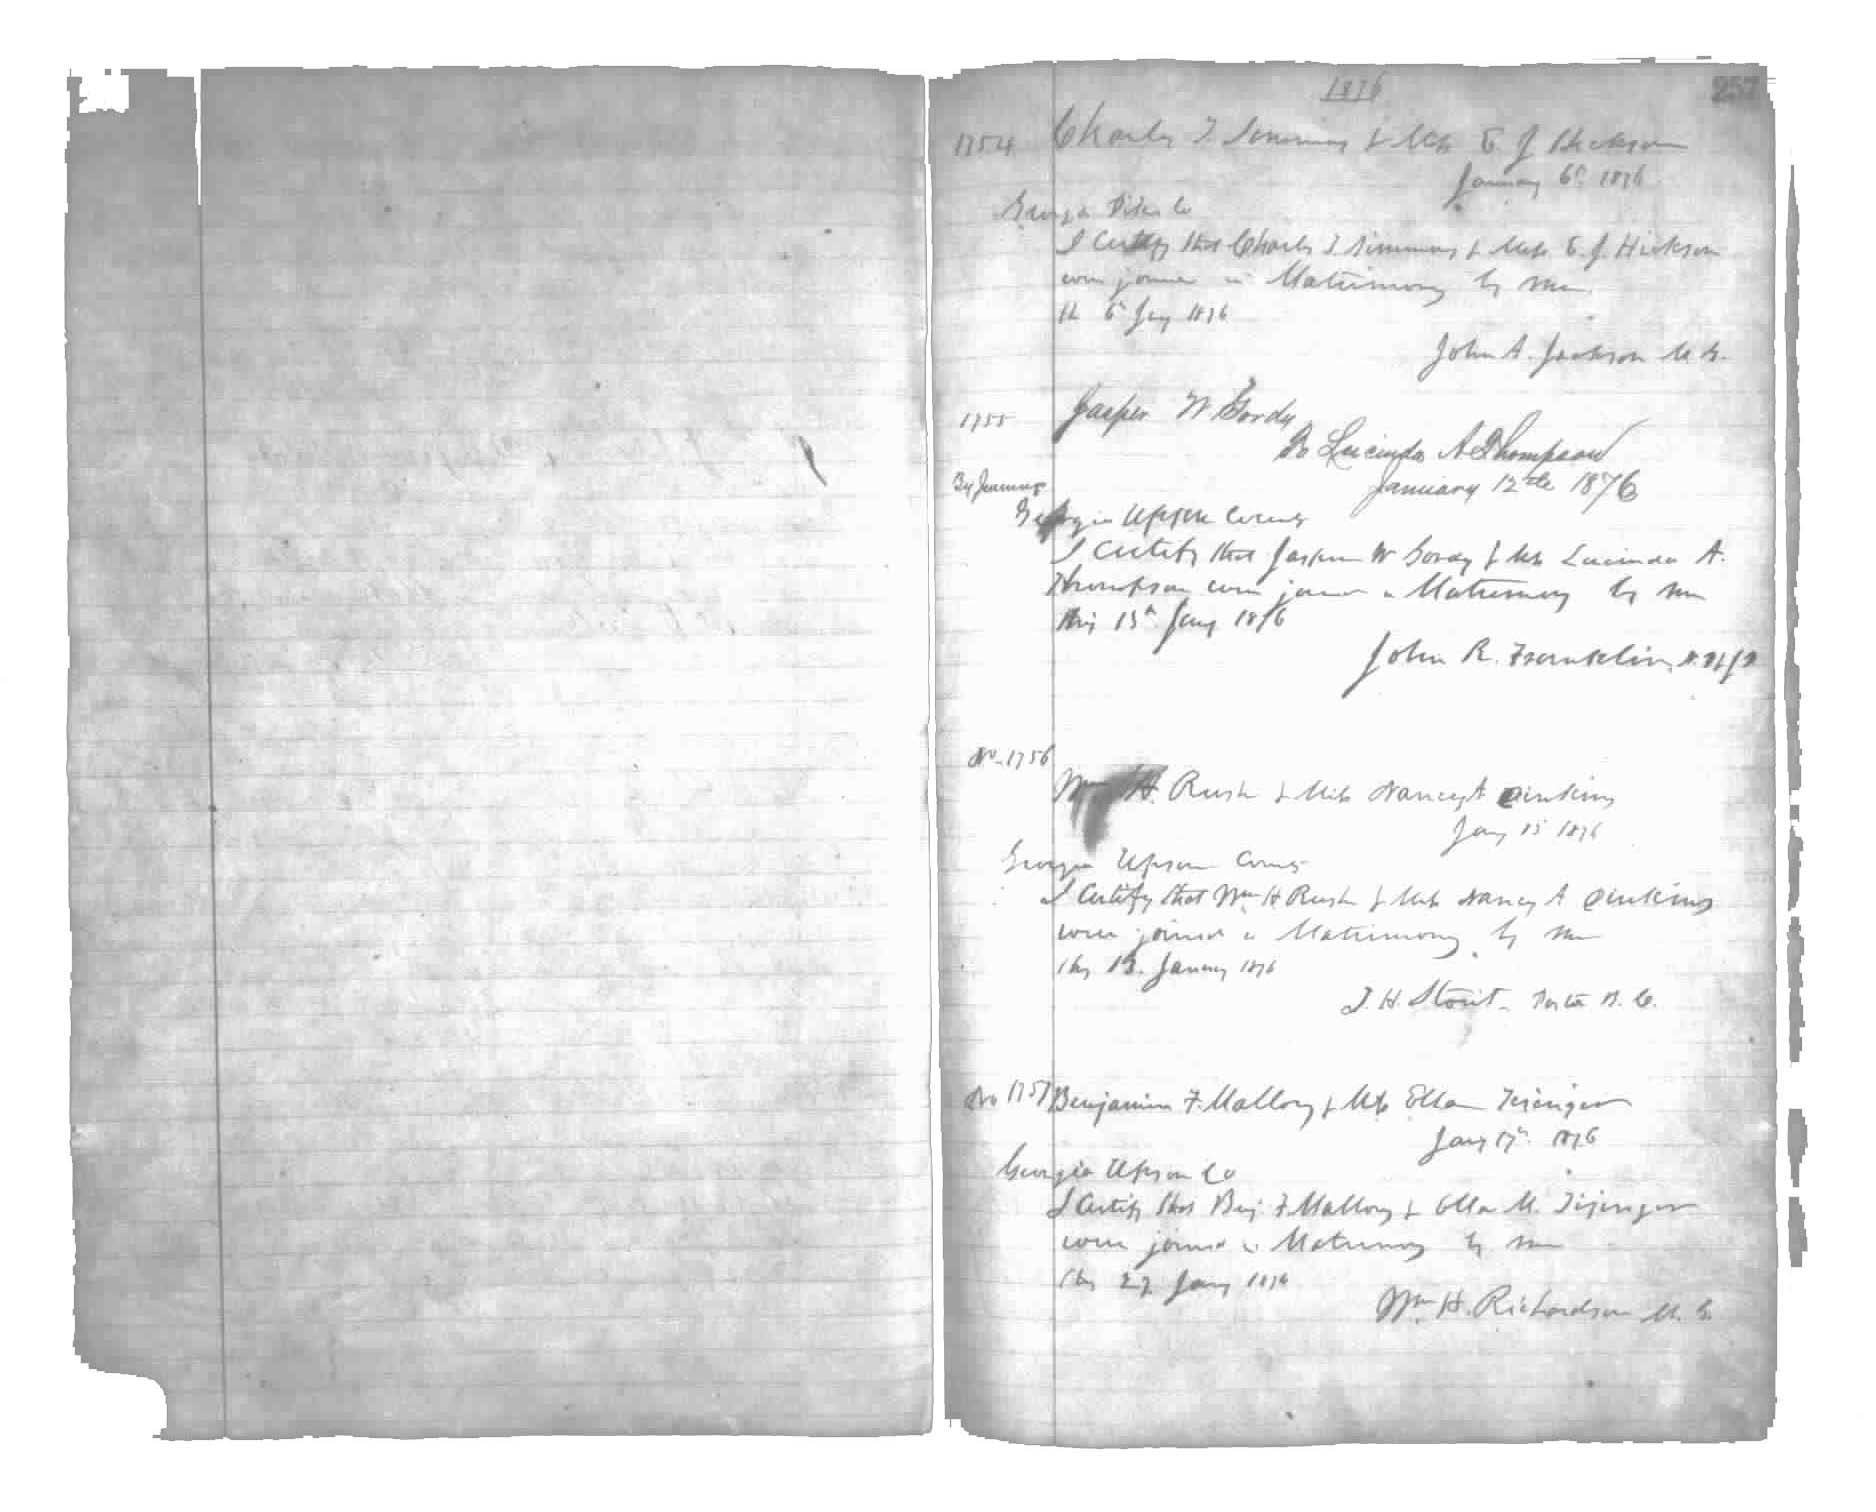 1876
257
1754 Charles T. Simmons & Miss E J Hickson
January 6th 1876
Georgia Pike Co
I Certify that Charles T. Simmons & Miss E. J. Hickson
were joined in Matrimony by me
the 6th Jany 1876
John A. Jackson M. G.
1755 Jasper W Gordy
To Lucinda A Thompson
January 12th 1876
Georgia Upson County
I Certify that Jasper W Gordy & Miss Lucinda A.
Thompson were joined in Matrimony by me
this 13th Jany 1876
John R. Franklin, N. P. & J P
No. 1756
Wm H. Rush & Miss Nancy A
Jany 15 1876
Georgia Upson County
I Certify that Wm H Rush & Miss Nancy A
were joined in Matrimony by me
this 13. January 1876
J. H. Stout B. C.
No 1757 Benjamin F. Mallory & Miss Ella
Jany 17th 1876
Georgia Upson Co
I Certify that Benj F Mallory & Ella M.
were joined in Matrimony by me
this 27 Jany 1876
Wm H. Richardson M. G.